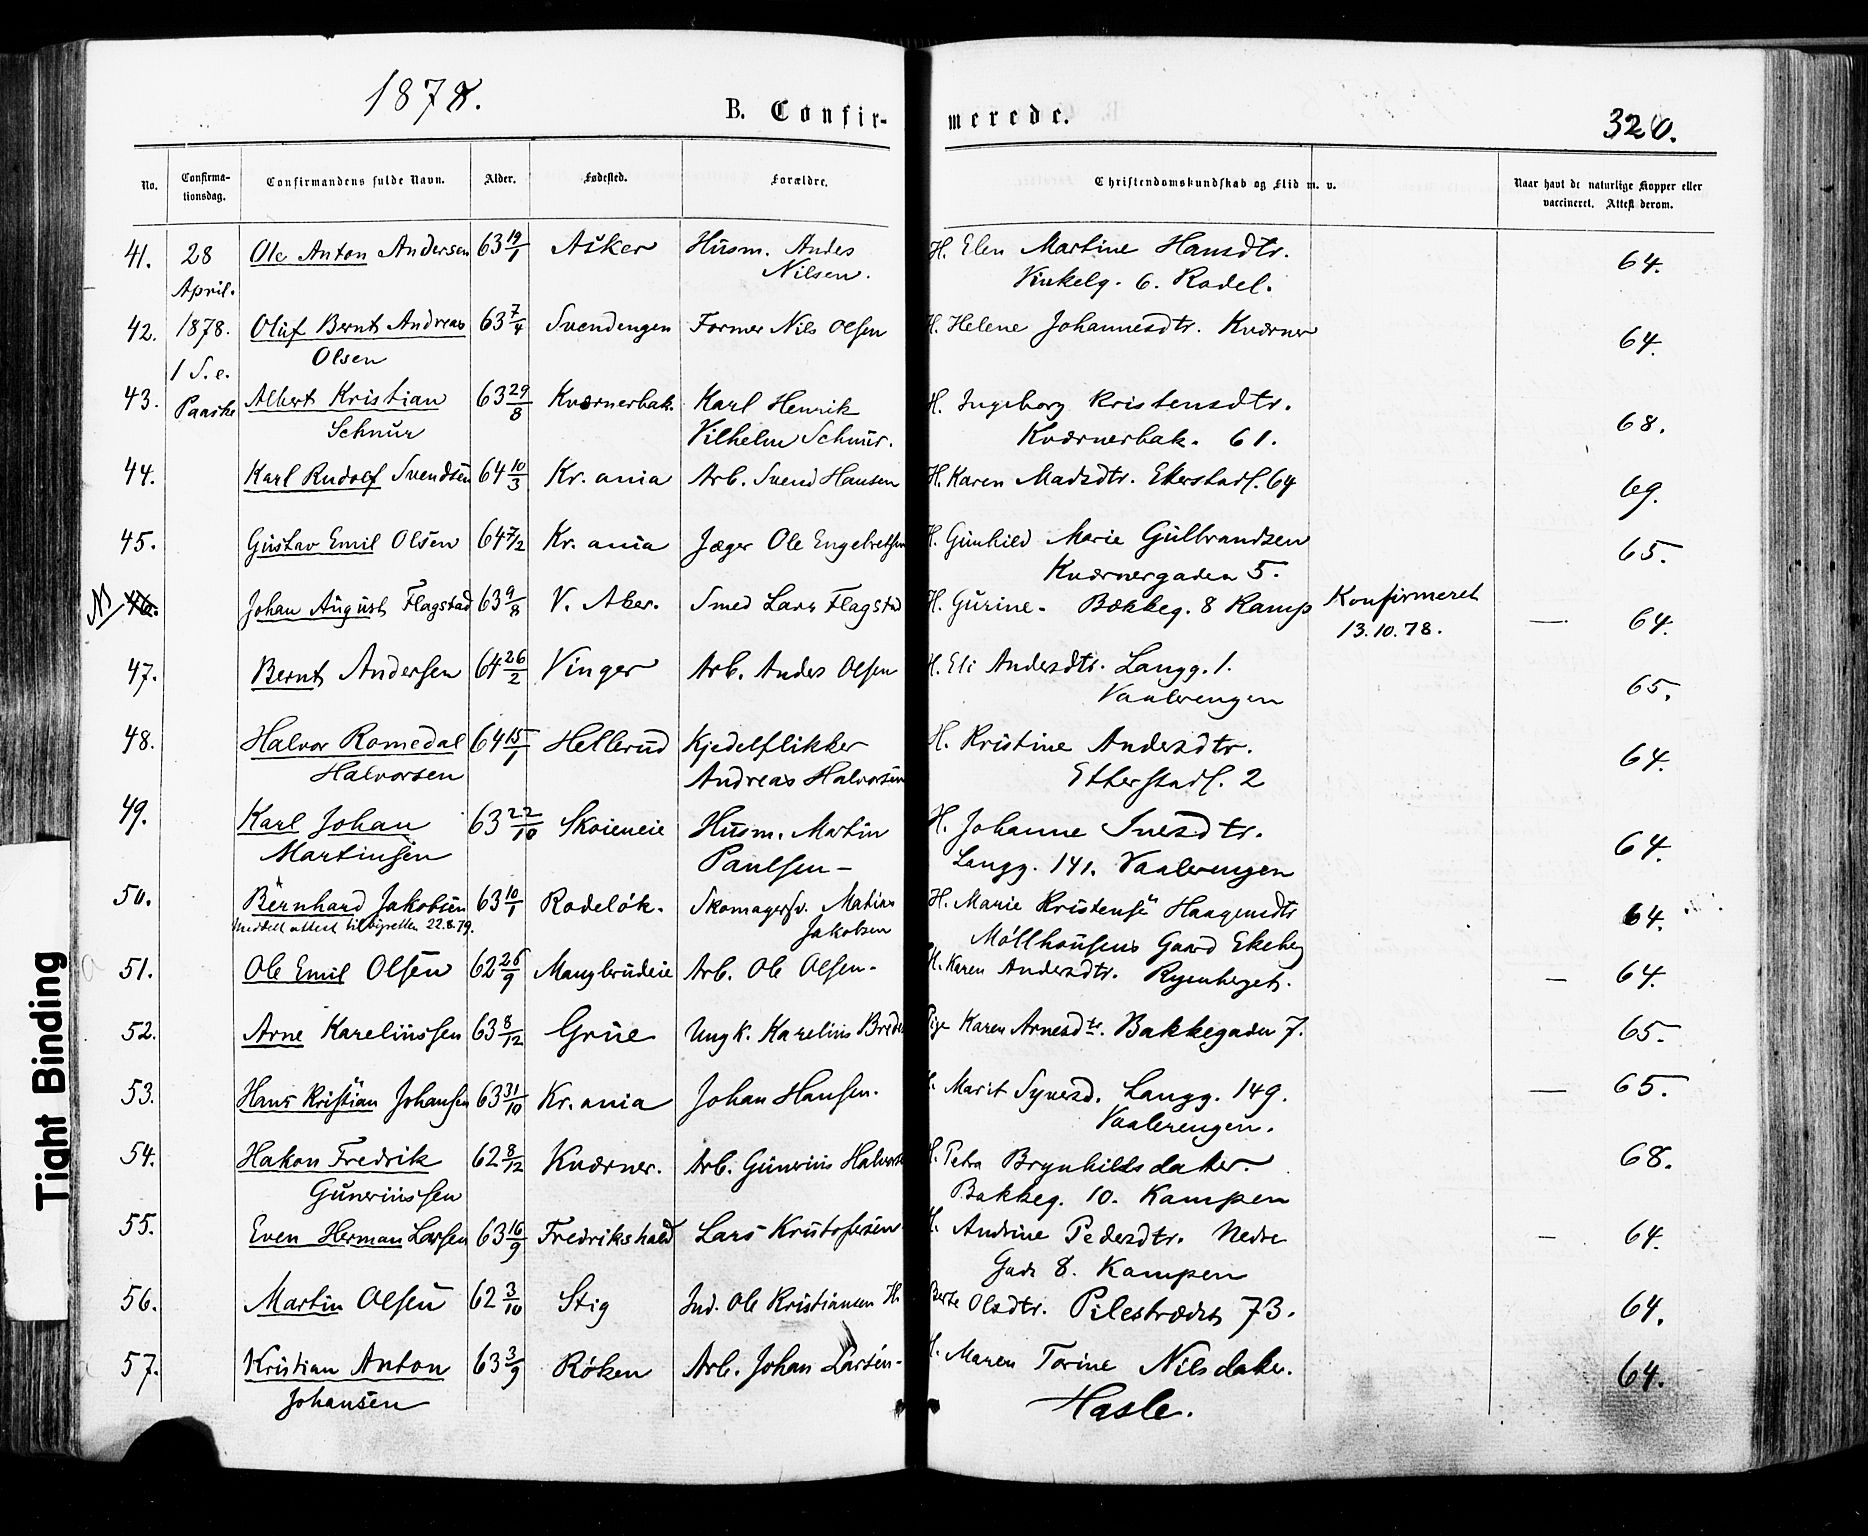 1878.
B. Confirmerede.
320.
No. Confirmationsdag. Confirmandens fulde Navn. Alder. Fødested. Forældre. Christendomskundskab og Flid m. v. Naar havt de naturlige Kopper eller vaccineret. Attest derom.
41. 28 Ole Anton Andersen 63 19/1 Asker Husm. Anders H. Elen Martine Hansdtr. 64.
April. Nilsen. Vinkelg. 6. Rodel.
42. 1878. Oluf Bernt Andreas 63 7/4 Svendengen Former Nils Olsen H. Helene Johannesdtr. Kværner 64.
1 S. e. Olsen
43. Paaske Albert Kristian 63 29/8 Kværnerbak. Karl Henrik H. Ingeborg Kristensdtr. 68.
Schnur Vilhelm Schnur. Kværnerbak. 61.
44. Karl Rudolf Svendsen 64 10/3 Kr.ania Arb. Svend Hansen H. Karen Madsdtr. Etterstadf. 64 69.
45. Gustav Emil Olsen 64 7/2 Kr.ania Jæger Ole Engebretsen H. Gunhild Marie Gulbrandsen 65.
Kværnergaden 5.
46. Johan August Flagstad 63 9/8 V. Aker. Smed Lars Flagstad H. Gurine. Bakkeg. 8 Kamp Konfirmeret — 64.
13.10.78.
47. Bernt Andersen 64 26/2 Vinger Arb. Anders Olsen H. Eli Andersdtr. Langg. 1. 65.
Vaalerengen
48. Halvor Romedal 64 15/1 Hellerud Kjedelflikker H. Kristine Andersdtr. 64.
Halvorsen Andreas Halvorsen Etterstadf. 2
49. Karl Johan 63 22/10 Skøieneie Husm. Martin H. Johanne Iversdtr. 64.
Martinsen Paulsen — Langg. 141. Vaalerengen
50. Bernhard Jakobsen 63 10/1 Rodeløk. Skomagersv. Matias H. Marie Kristense Haagensdtr 64.
Meddelt attest til vigselen 22.8.79. Jakobsen Møllhausens Gaard Ekeberg
51. Ole Emil Olsen 62 26/9 Manglerudeie Arb. Ole Olsen. H. Karen Andersdtr. Ryenberget. — 64.
52. Arne Kareliussen 63 8/12 Grue Ungk. Karelius Brede Pige Karen Arnesdtr. Bakkegaden 7. 65.
53. Hans Kristian Johansen 63 31/10 Kr.ania Johan Hansen. H. Marit Syversd. Langg. 149. — 65.
Vaalerengen.
54. Hakon Fredrik 62 8/12 Kværner. Arb. Gunerius Halvorse H. Petra Brynhildsdatter. 68.
Guneriussen Bakkeg. 10. Kampen
55. Even Herman Larsen 63 16/9 Fredrikshald Lars Kristofersen H. Andrine Pedersdtr. Nedre — 64.
Gade 8. Kampen
56. Martin Olsen 62 3/10 Stig Ind. Ole Kristiansen H. Berte Olsdtr. Pilestrædet 73. 64.
57. Kristian Anton 63 3/9 Røken Arb. Johan Larsen- H. Maren Torine Nilsdatter. 64.
Johansen Hasle.
Tight Binding